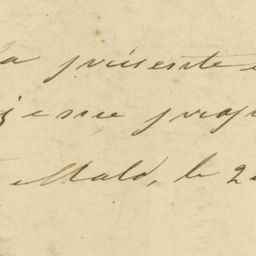 a présente
je me prop
Malo, le 2